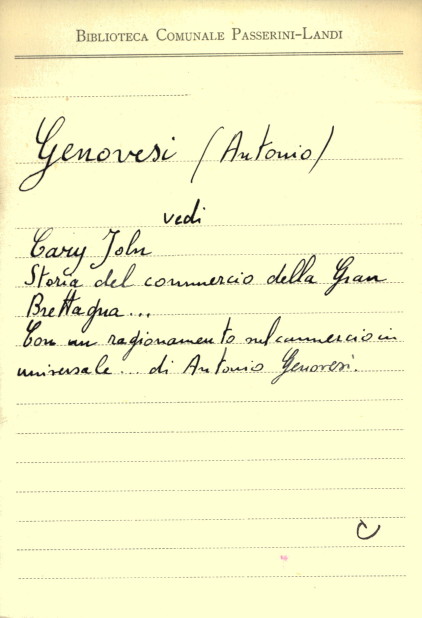 BIBLIOTECA COMUNALE PASSERINI-LANDI
Genovesi (Antonio)
vedi
Cary John
Storia del commercio della Gran
Brettagna...
Con un ragionamento sul commercio in
universale... di Antonio Genovesi.
C